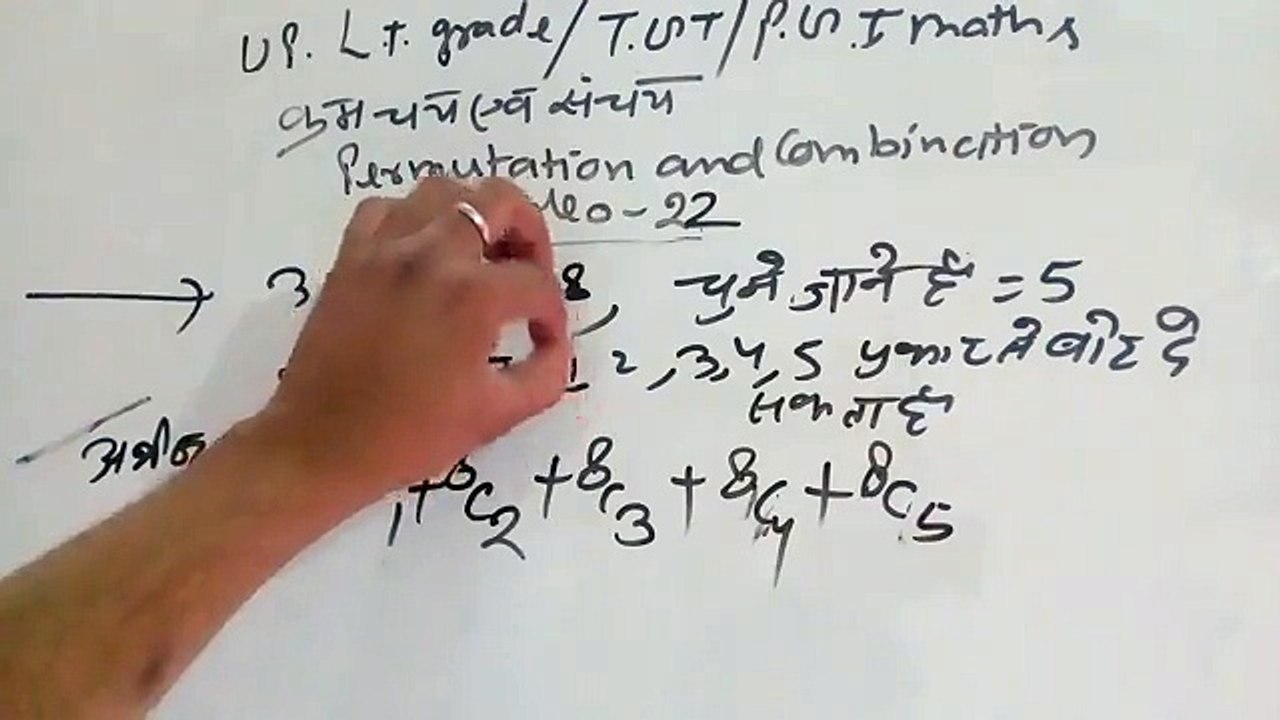 UP. L.T. grade/T.G.T/P.G.T maths
क्रमचय एवं संचय
Permutation and Combincition
- 22
8, चुने जाने हैं = 5
1 2, 3, 4, 5 प्रकार से वोट दे
सकता है
1 + 8C2 + 8C3 + 8C4 + 8C5